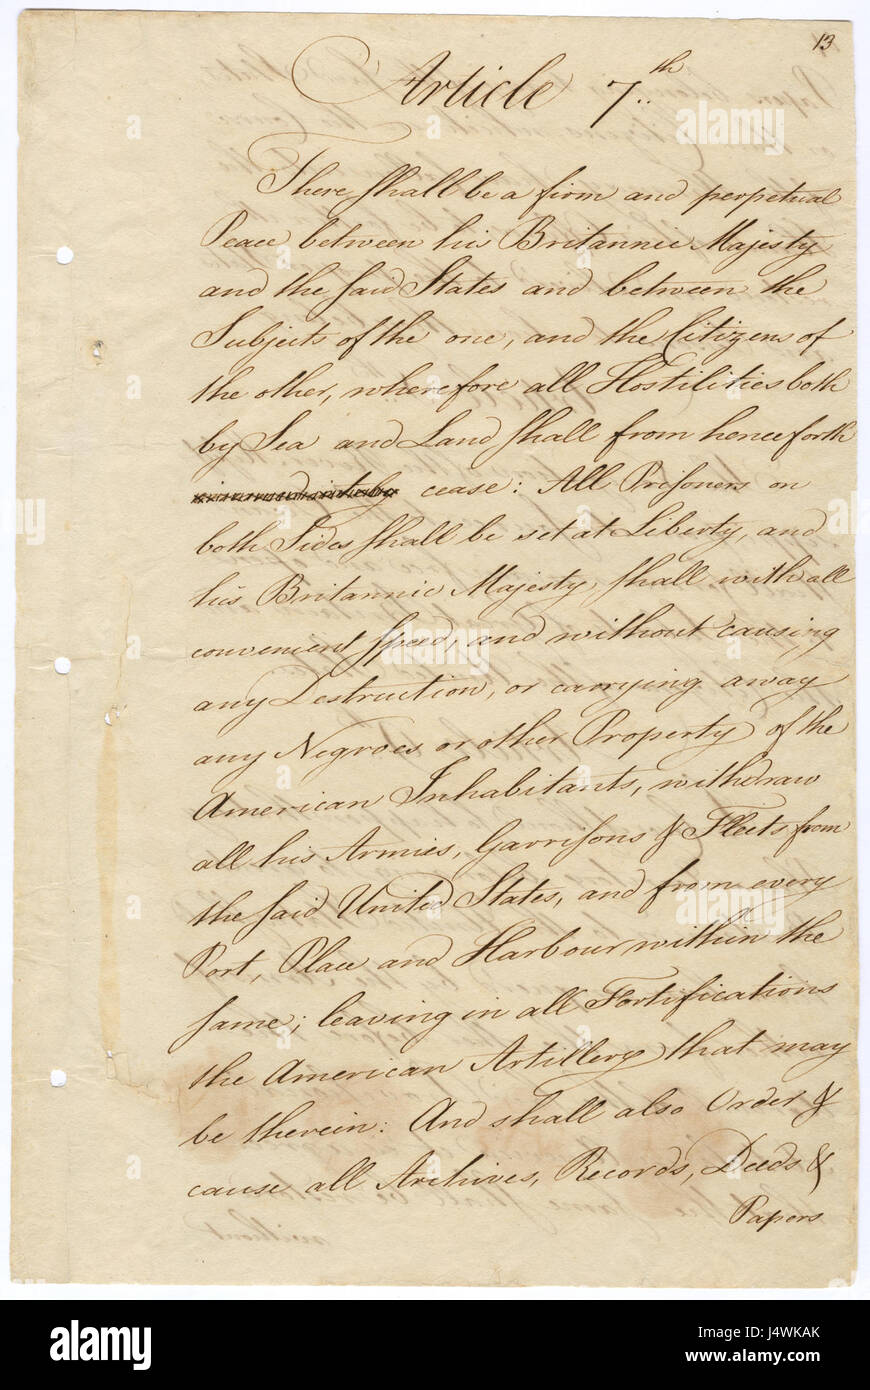 13
Article 7..th
There shall be a firm and perpetual
Peace between his Britannic Majesty
and the said States and between the
Subjects of the one, and the Citizens of
the other, wherefore all Hostilities both
by Sea and Land shall from henceforth
immediately cease: All Prisoners on
both Sides shall be set at Liberty, and
his Britannic Majesty, shall with all
convenient speed, and without causing
any Destruction, or carrying away
any Negroes or other Property of the
American Inhabitants, withdraw
all his Armies, Garrisons & Fleets from
the said United States, and from every
Port, Place and Harbour within the
same; leaving in all Fortifications
the American Artillery that may
be therein: And shall also Order &
cause all Archives, Records, Deeds &
Papers
alamy
Image ID: J4WKAK
www.alamy.com